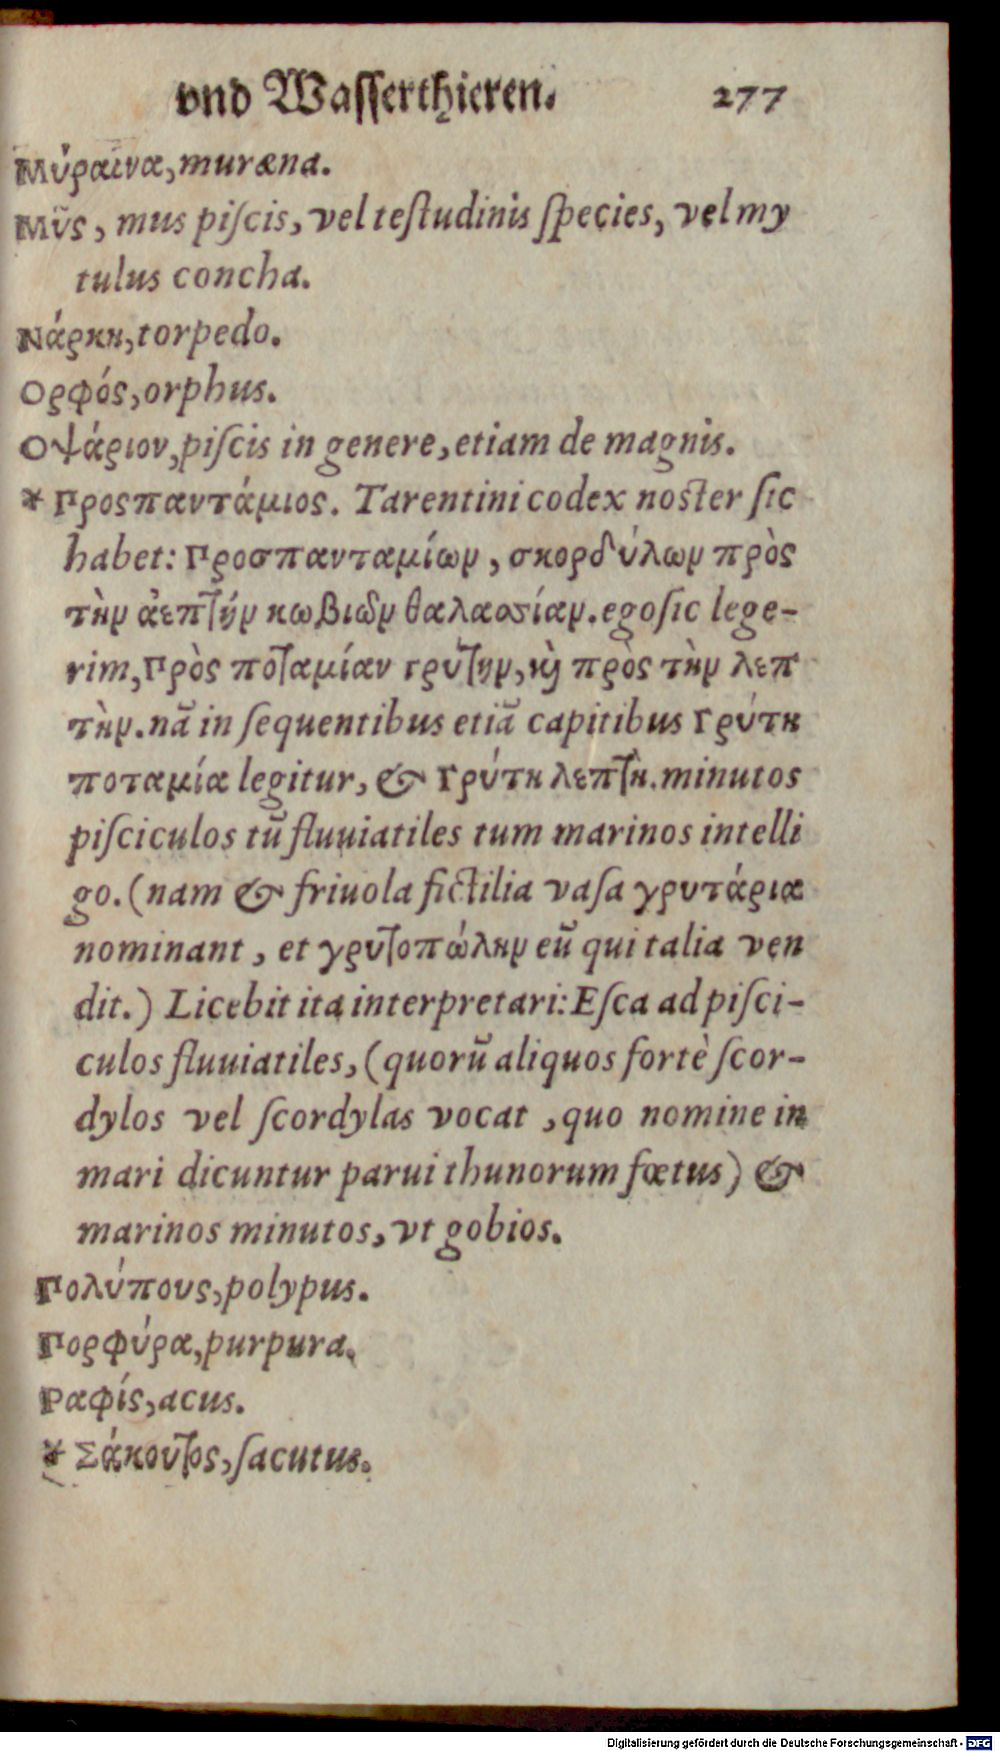 vnd Wasserthieren. 277
Μύραινα, muræna.
Μῦς, mus piſcis, vel teſtudinis ſpecies, vel my
tulus concha.
Νάρκη, torpedo.
Ορφός, orphus.
Οψάριον, piſcis in genere, etiam de magnis.
* Προςπαντάμιος. Tarentini codex noster ſic
habet: Προσπανταμίων, σκορδύλων πρὸς
τὴν ἀεπτὴν κωβιῶν θαλασσίαν. ego ſic lege-
rim, Πρὸς ποταμίαν γρύτην, καὶ πρὸς τὴν λεπ
τὴν. nā in ſequentibus etiā capitibus Γρύτη
ποταμία legitur, & Γρύτη λεπτὴ. minutos
piſciculos tū fluuiatiles tum marinos intelli
go. (nam & friuola fictilia vaſa γρυτάρια
nominant, et γρυτοπώλην eū qui talia ven
dit.) Licebit ita interpretari: Eſca ad piſci-
culos fluuiatiles, (quorū aliquos fortè ſcor-
dylos vel ſcordylas vocat, quo nomine in
mari dicuntur parui thunorum fœtus) &
marinos minutos, vt gobios.
Πολύπους, polypus.
Πορφύρα, purpura.
Ραφίς, acus.
* Σάκουτος, ſacutus.
Digitalisierung gefördert durch die Deutsche Forschungsgemeinschaft - DFG